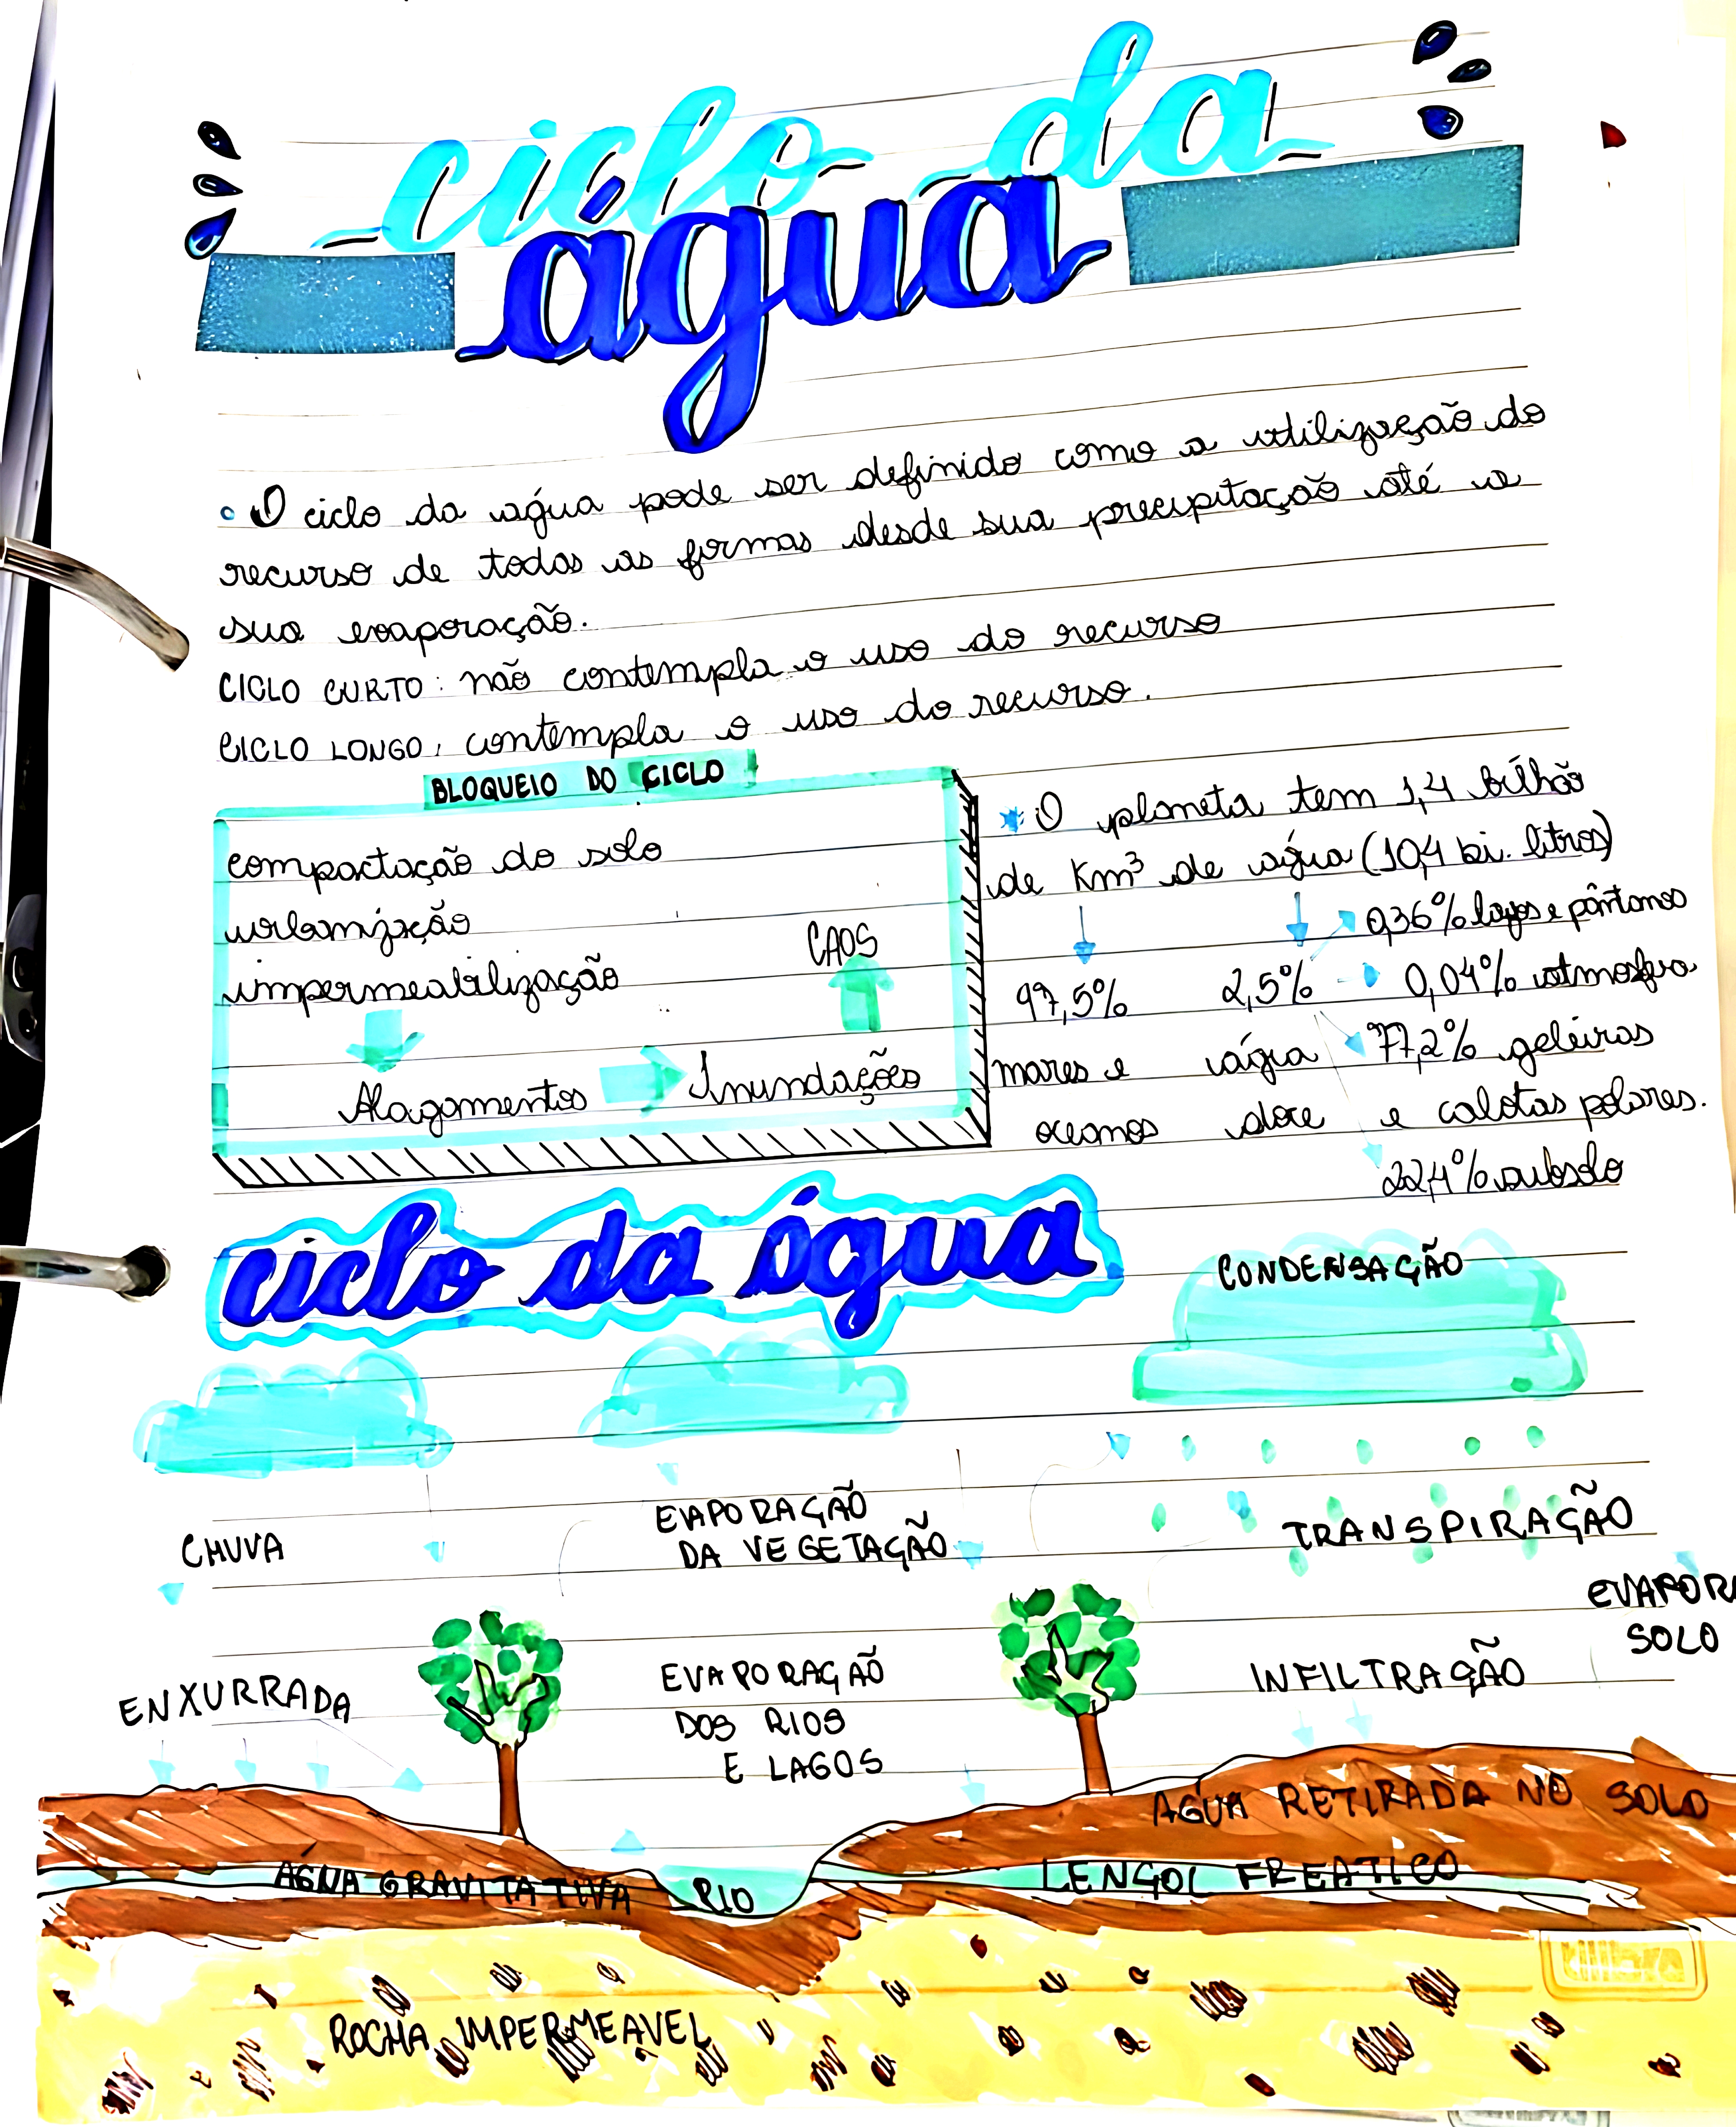 ciclo da
água
• O ciclo da água pode ser definido como a utilização do
recurso de todas as formas desde sua precipitação até a
sua evaporação.
CICLO CURTO: não contempla o uso do recurso
CICLO LONGO: contempla o uso do recurso.
BLOQUEIO DO CICLO
compactação do solo
urbanização
impermeabilização
CAOS
Alagamentos
Inundações
* O planeta tem 1,4 bilhão
de Km³ de água (10,4 bi. litros)
0,36% lagos e pântanos
97,5% 2,5% 0,04% atmosfera
mares e água 77,2% geleiras
oceanos doce e calotas polares.
22,4% subsolo
ciclo da água
CONDENSAÇÃO
CHUVA
EVAPORAÇÃO
DA VEGETAÇÃO
TRANSPIRAÇÃO
EVAPORA
SOLO
ENXURRADA
EVAPORAÇÃO
DOS RIOS
E LAGOS
INFILTRAÇÃO
ÁGUA RETIRADA NO SOLO
ÁGUA GRAVITATIVA
RIO
LENÇOL FREATICO
ROCHA IMPERMEAVEL
tilibra